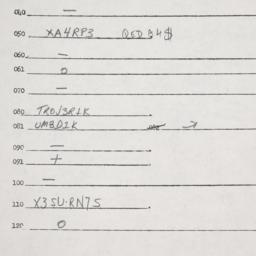 040 —
050 XA4RP3
060 —
061 0
070 —
080
081 UMBD1K
090 —
091 +
100 —
110 X3SU.RN7S
120 0